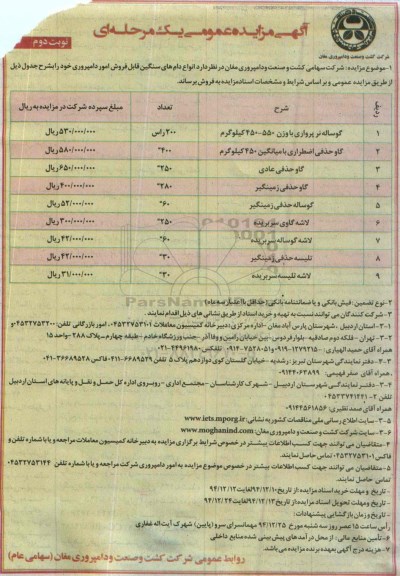 آگهی مزایده عمومی یک مرحله‌ای
نوبت دوم
شرکت کشت و صنعت و دامپروری مغان
۱- موضوع مزایده: شرکت سهامی کشت و صنعت و دامپروری مغان در نظر دارد انواع دام های سنگین قابل فروش امور دامپروری خود را بشرح جدول ذیل
از طریق مزایده عمومی و بر اساس شرایط و مشخصات اسناد مزایده به فروش برساند.
ردیف شرح تعداد مبلغ سپرده شرکت در مزایده به ریال
۱ گوساله نر پرواری با وزن ۵۵۰-۴۵۰ کیلوگرم ۲۰۰ راس ۵۳۰/۰۰۰/۰۰۰ ریال
۲ گاو حذفی اضطراری با میانگین ۴۵۰ کیلوگرم ۴۰۰" ۵۸۰/۰۰۰/۰۰۰ ریال
۳ گاو حذفی عادی ۲۵۰" ۶۵۰/۰۰۰/۰۰۰ ریال
۴ گاو حذفی زمینگیر ۲۸۰" ۴۰۰/۰۰۰/۰۰۰ ریال
۵ گوساله حذفی زمینگیر ۶۰" ۵۲/۰۰۰/۰۰۰ ریال
۶ لاشه گاوی سربریده ۲۵۰" ۳۰۰/۰۰۰/۰۰۰ ریال
۷ لاشه گوساله سربریده ۶۰" ۴۲/۰۰۰/۰۰۰ ریال
۸ تلیسه حذفی زمینگیر ۳۰" ۴۲/۰۰۰/۰۰۰ ریال
۹ لاشه تلیسه سربریده ۳۰" ۳۱/۰۰۰/۰۰۰ ریال
۲- نوع تضمین: فیش بانکی و یا ضمانتنامه بانکی (حداقل با اعتبار سه ماه)
۳- شرکت کنندگان می توانند نسبت به تهیه و خرید اسناد از طریق نشانی های ذیل اقدام نمایند.
۳-۱- استان اردبیل - شهرستان پارس آباد مغان - اداره مرکزی - دبیرخانه کمیسیون معاملات ۰۴۵۳۲۷۵۳۱۰۱ امور بازرگانی تلفن: ۰۴۵۳۲۷۵۳۲۰۰ و
۳-۲- تهران - فلکه دوم صادقیه - بلوار فردوس - بین خیابان رامین و وفا آذر - جنب ورزشگاه خادم - طبقه چهارم - پلاک ۲۸۸ - واحد ۱۵
همراه آقای حمید الهیاری:
۳-۳- دفتر نمایندگی شهرستان تبریز: رشدیه - خیابان گلستان کوی دوازدهم پلاک ۵ تلفن ۶۶۸۹۵۲۹-۰۴۱۱ فاکس ۳۶۶۸۹۵۲۸-۰۴۱
، همراه آقای صفر فهیمی: ۰۹۱۴۴۰۶۳۸۹۹
۳-۴- دفتر نمایندگی شهرستان اردبیل - شهرک کارشناسان - مجتمع اداری - روبروی اداره کل حمل و نقل و پایانه های استان اردبیل
تلفن ۰۴۵۳۳۷۴۱۲۲۱-۲
همراه آقای صمد نظیری: ۰۹۱۴۴۵۶۱۸۵۶
۳-۵- سایت اطلاع رسانی ملی مناقصات کشور به نشانی: www.iets.mporg.ir
۳-۶- سایت شرکت کشت و صنعت و دامپروری مغان: www.moghanind.com
۴- متقاضیان می توانند جهت کسب اطلاعات بیشتر در خصوص شرایط برگزاری مزایده به دبیر خانه کمیسیون معاملات مراجعه و یا با شماره تلفن و
فاکس ۰۴۵۳۲۷۵۳۱۰۱ تماس حاصل نمایند.
۵- متقاضیان می توانند جهت کسب اطلاعات بیشتر در خصوص موضوع مزایده به امور دامپروری شرکت مراجعه و یا با شماره تلفن ۰۴۵۳۲۷۵۳۱۴۴ تماس
حاصل نمایند.
- تاریخ و مهلت خرید اسناد مزایده: از تاریخ ۹۴/۱۲/۱۰ لغایت ۹۴/۱۲/۱۲
- تاریخ و مهلت تحویل اسناد مزایده: از تاریخ ۹۴/۱۲/۱۳ لغایت ۹۴/۱۲/۲۴
- تاریخ و زمان بازگشایی پیشنهادات:
رأس ساعت ۱۵ عصر روز سه شنبه مورخ ۹۴/۱۲/۲۵ مهمانسرای سرو (پایین) شهرک آیت اله غفاری
۶- تأمین منابع مالی: از محل درآمد های پیش بینی شده منابع داخلی
۷- هزینه درج آگهی بعهده برنده مزایده می باشد.
روابط عمومی شرکت کشت و صنعت و دامپروری مغان (سهامی عام)